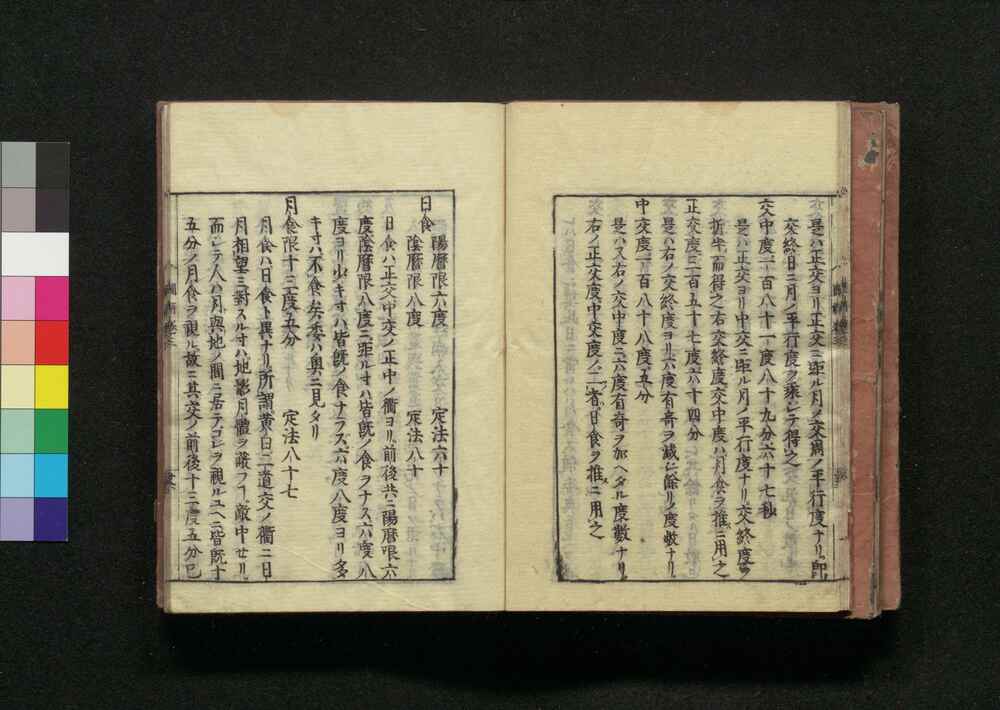 是ハ正交ヨリ正交ニ距ル月ノ交周ノ平行度ナリ即
交終日ニ月ノ平行度ヲ乗シテ得之
交中度一百八十一度八十九分六十七秒
是ハ正交ヨリ中交ニ距ル月ノ平行度ナリ交終度ヲ
折半而得之右交終度交中度ハ月食ヲ推ニ用之
正交度三百五十七度六十四分
是ハ右ノ交終度ヨリ六度有奇ヲ減シ餘リノ度数ナリ
中交度一百八十八度〇五分
是ハ又右ノ交中度ニ六度有奇ヲ加ヘタル度數ナリ
右ノ正交度中交度ノ二者ハ日食ヲ推ニ用之
日食 陽暦限六度 定法六十
陰暦限八度 定法八十
日食ハ正交中交ノ正中ノ衢ヨリ前後共ニ陽暦限六
度陰暦限八度ニ距ル寸ハ皆既ノ食ヲナス六度八
度ヨリ少キ寸ハ皆既ノ食ナラス六度八度ヨリ多
キ寸ハ不食矣委ハ奥ニ見タリ
月食限十三度五分 定法八十七
月食ハ日食ト異ナリ所謂黄白二道交ノ衢ニ日
月相望ミ對スル寸ハ地影月體ヲ蔽フ敵中セリ
而シテ人ハ月與地ノ間ニ居テコレヲ視ルユヘニ皆既十
五分ノ月食ヲ視ル故ニ其交ノ前後十三度五分已